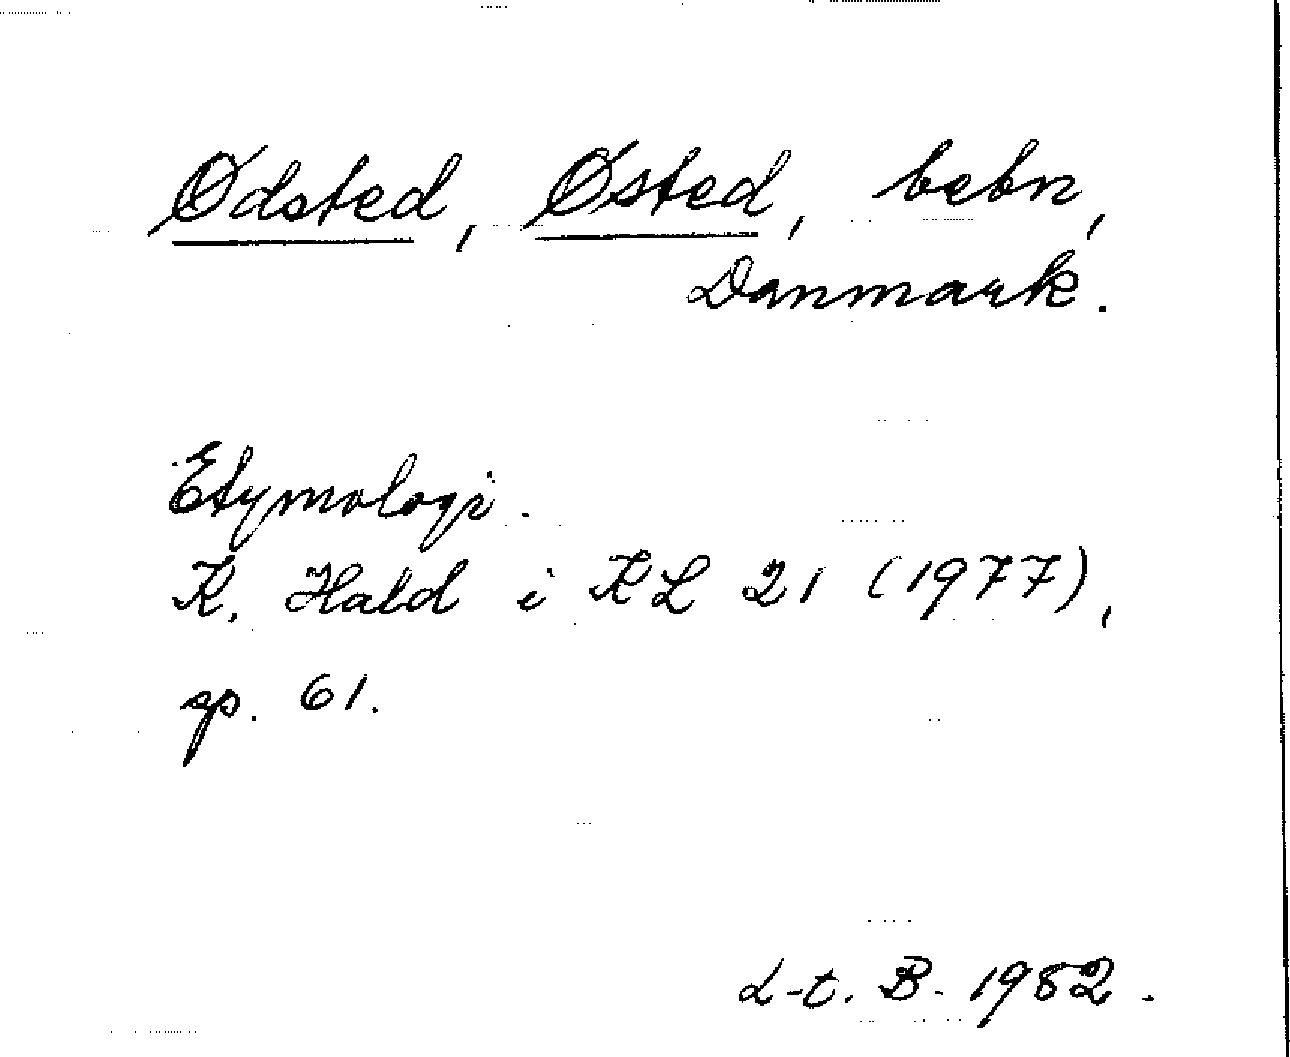 Ødsted, Østed, bebn,
Danmark.
Etymologi.
K. Hald i KL 21 (1977),
sp. 61.
L-t. B. 1982.